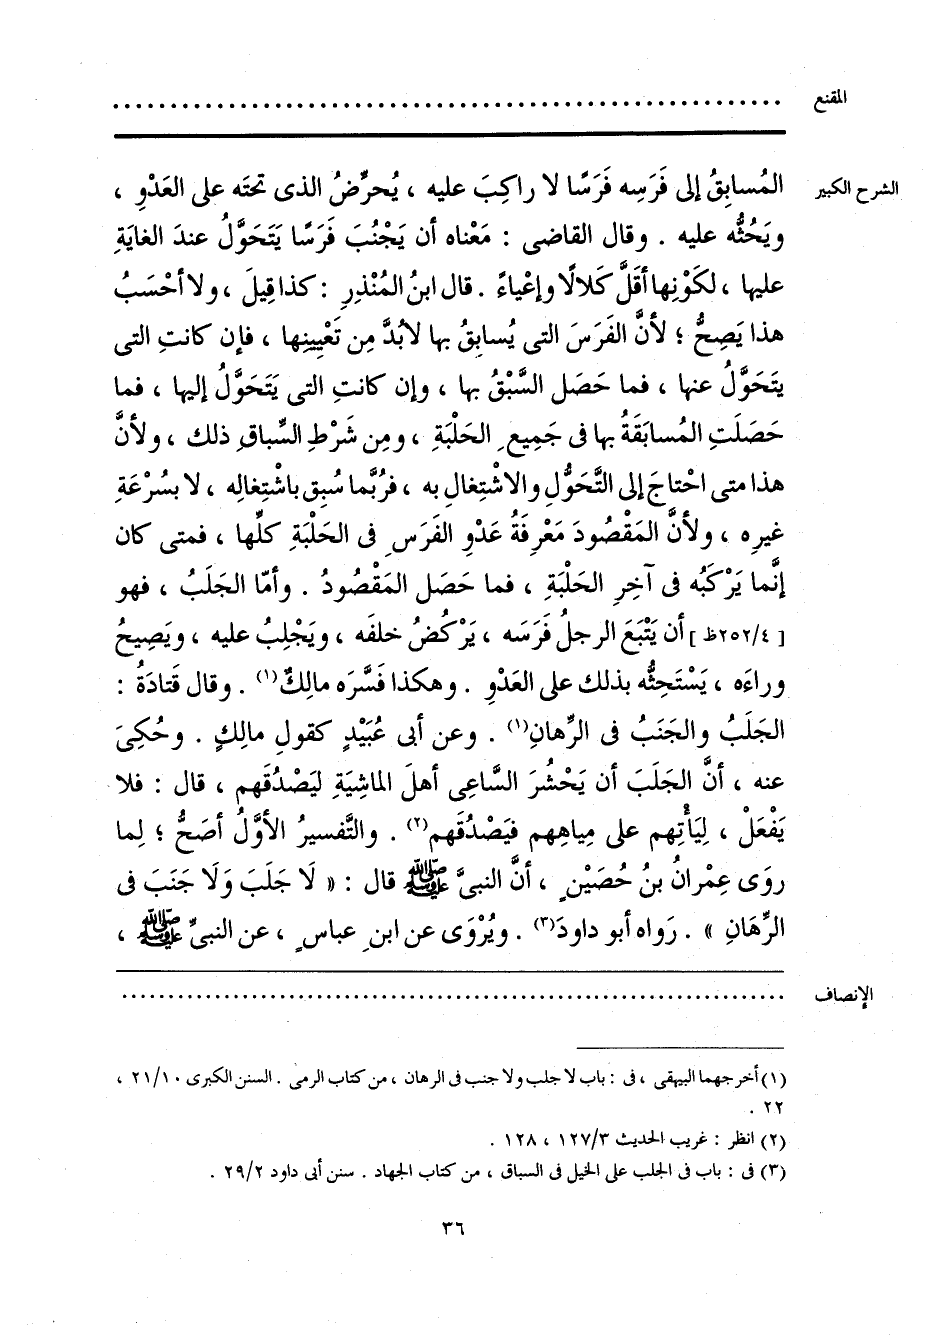 المقنع ..........................................................
الشرح الكبير المُسابِقُ إلى فَرَسِه فَرَسًا لا راكِبَ عليه ، يُحرِّضُ الذى تحتَه على العَدْوِ ،
ويَحُثُّه عليه . وقال القاضى : مَعْناه أن يَجْنُبَ فَرَسًا يَتَحَوَّلُ عندَ الغايَةِ
عليها ، لكَوْنِها أقَلَّ كَلالًا وإعْياءً . قال ابنُ المُنْذِرِ : كذا قِيلَ ، ولا أحْسَبُ
هذا يَصِحُّ ؛ لأنَّ الفَرَسَ التى يُسابِقُ بها لابُدَّ مِن تَعْيِينِها ، فإن كانتِ التى
يتَحَوَّلُ عنها ، فما حَصَل السَّبْقُ بها ، وإن كانتِ التى يَتَحَوَّلُ إليها ، فما
حَصَلَتِ المُسابَقَةُ بها فى جَمِيعِ الحَلْبَةِ ، ومِن شَرْطِ السِّباقِ ذلك ، ولأنَّ
هذا متى احْتاجَ إلى التَّحَوُّلِ والاشْتِغالِ به ، فرُبَّما سُبِق باشْتِغالِه ، لا بسُرْعَةِ
غيرِه ، ولأنَّ المَقْصُودَ مَعْرِفَةُ عَدْوِ الفَرَسِ فى الحَلْبَةِ كلِّها ، فمتى كان
إنَّما يَرْكَبُه فى آخِرِ الحَلْبَةِ ، فما حَصَل المَقْصُودُ . وأمّا الجَلَبُ ، فهو
[ ٢٥٢/٤ظ ] أن يَتْبَعَ الرجلُ فَرَسَه ، يَرْكُضُ خلفَه ، ويَجْلِبُ عليه ، ويَصِيحُ
وراءَه ، يَسْتَحِثُّه بذلك على العَدْوِ . وهكذا فَسَّرَه مالِكٌ(١) . وقال قَتادَةُ :
الجَلَبُ والجَنَبُ فى الرِّهانِ(١) . وعن أبى عُبَيْدٍ كقولِ مالِكٍ . وحُكِىَ
عنه ، أنَّ الجَلَبَ أن يَحْشُرَ السَّاعِى أهلَ الماشِيَةِ ليَصْدُقَهم ، قال : فلا
يَفْعَلْ ، لِيَأْتِهم على مِياهِهم فيَصْدُقَهم(٢) . والتَّفسيرُ الأوَّلُ أصَحُّ ؛ لِما
روَى عِمْرانُ بنُ حُصَيْنٍ ، أنَّ النبىَّ ﷺ قال : « لَا جَلَبَ وَلَا جَنَبَ فى
الرِّهَانِ » . رَواه أبو داودَ(٣) . ويُرْوَى عن ابنِ عباسٍ ، عن النبىِّ ﷺ ،
الإنصاف ..........................................................
(١) أخرجهما البيهقى ، فى : باب لا جلب ولا جنب فى الرهان ، من كتاب الرمى . السنن الكبرى ٢١/١٠ ،
٢٢ .
(٢) انظر : غريب الحديث ١٢٧/٣ ، ١٢٨ .
(٣) فى : باب فى الجلب على الخيل فى السباق ، من كتاب الجهاد . سنن أبى داود ٢٩/٢ .
٣٦